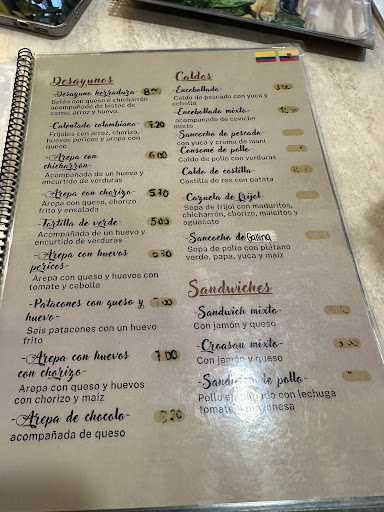 Desayunos
-Desayuno herradura-
Bolón con queso o chicharrón
acompañado de bistec de
carne, arroz y huevo.
-Calentado colombiano- 7.20
Frijoles con arroz, chorizo,
huevos pericos y arepa con
queso
-Arepa con 6.00
chicharrón-
Acompañada de un huevo y
encurtido de verduras
-Arepa con chorizo-
Arepa con queso, chorizo
frito y ensalada
-Tortilla de verde- 5.00
Acompañada de un huevo y
encurtido de verduras
-Arepa con huevos
pericos-
Arepa con queso y huevos con
tomate y cebolla
-Patacones con queso y
huevo-
Seis patacones con un huevo
frito
-Arepa con huevos 7.00
con chorizo-
Arepa con queso y huevos
con chorizo y maiz
-Arepa de chocolo-
acompañada de queso
Caldos
-Encebollado-
Caldo de pescado con yuca y
cebolla
-Encebollado mixto-
acompañado de ceviche
mixto
-Sancocho de pescado-
con yuca y crema de mani
-Consome de pollo-
Caldo de pollo con verduras
-Caldo de costilla-
Costilla de res con patata
-Cazuela de frijol-
Sopa de frijol con maduritos,
chicharrón, chorizo, maicitos y
aguacate
-Sancocho de Gallina
Sopa de pollo con platano
verde, papa, yuca y maiz
Sandwiches
-Sandwich mixto-
Con jamón y queso
-Croasan mixto-
Con jamón y queso
-Sandwich de pollo-
Pollo con lechuga
tomate